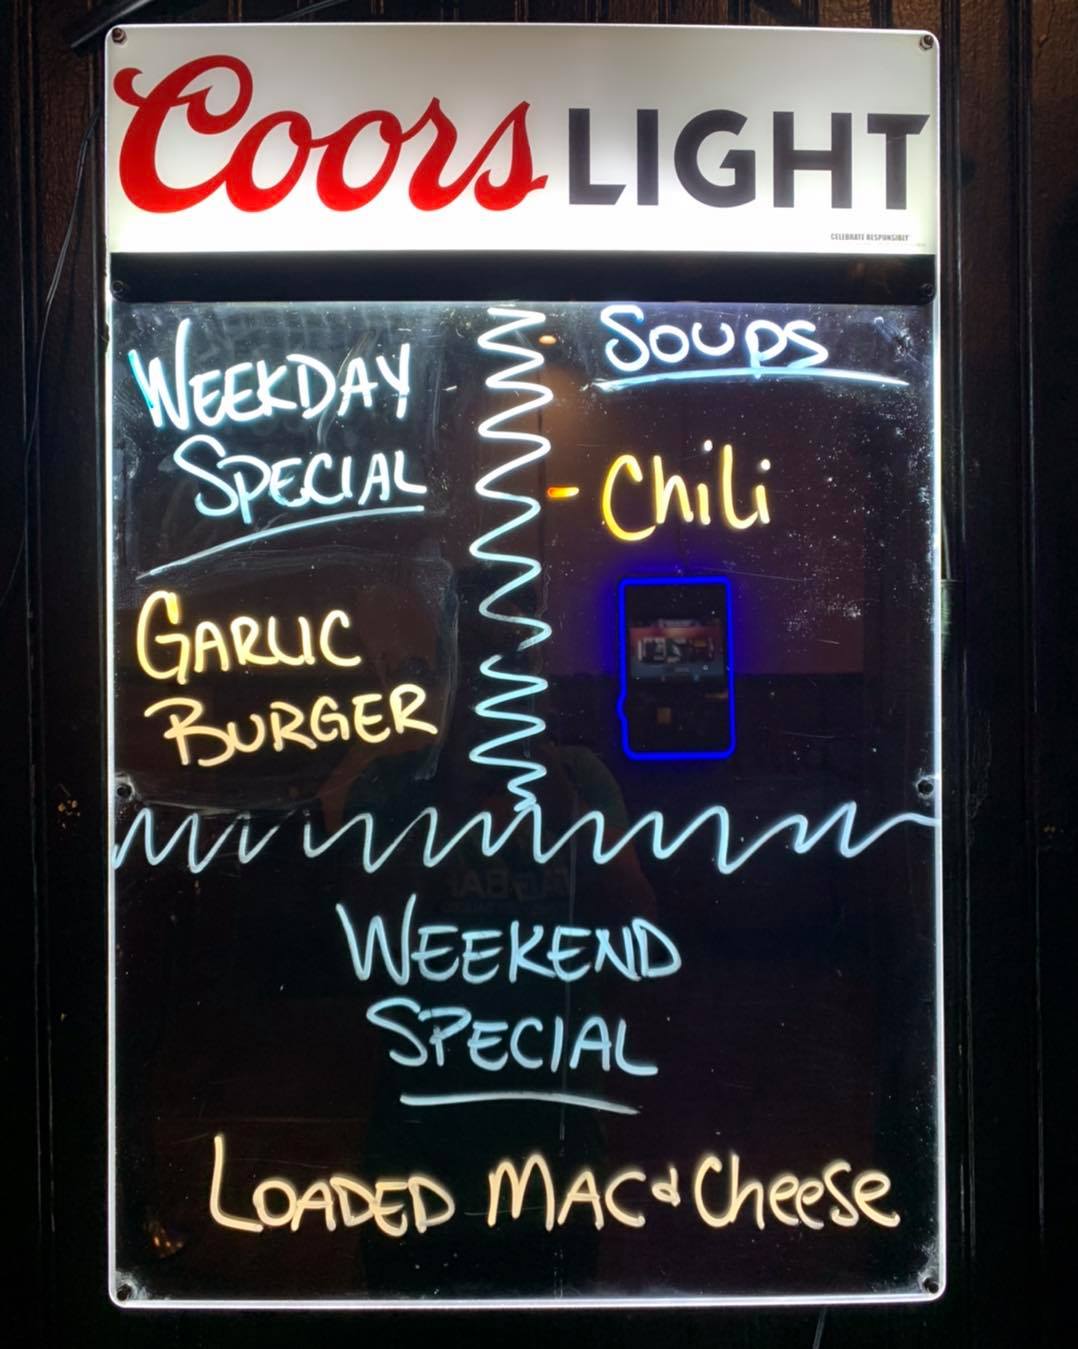 Coors LIGHT
CELEBRATE RESPONSIBLY
WEEKDAY
SPECIAL
GARLIC
BURGER
Soups
- Chili
WEEKEND
SPECIAL
LOADED MAC & Cheese